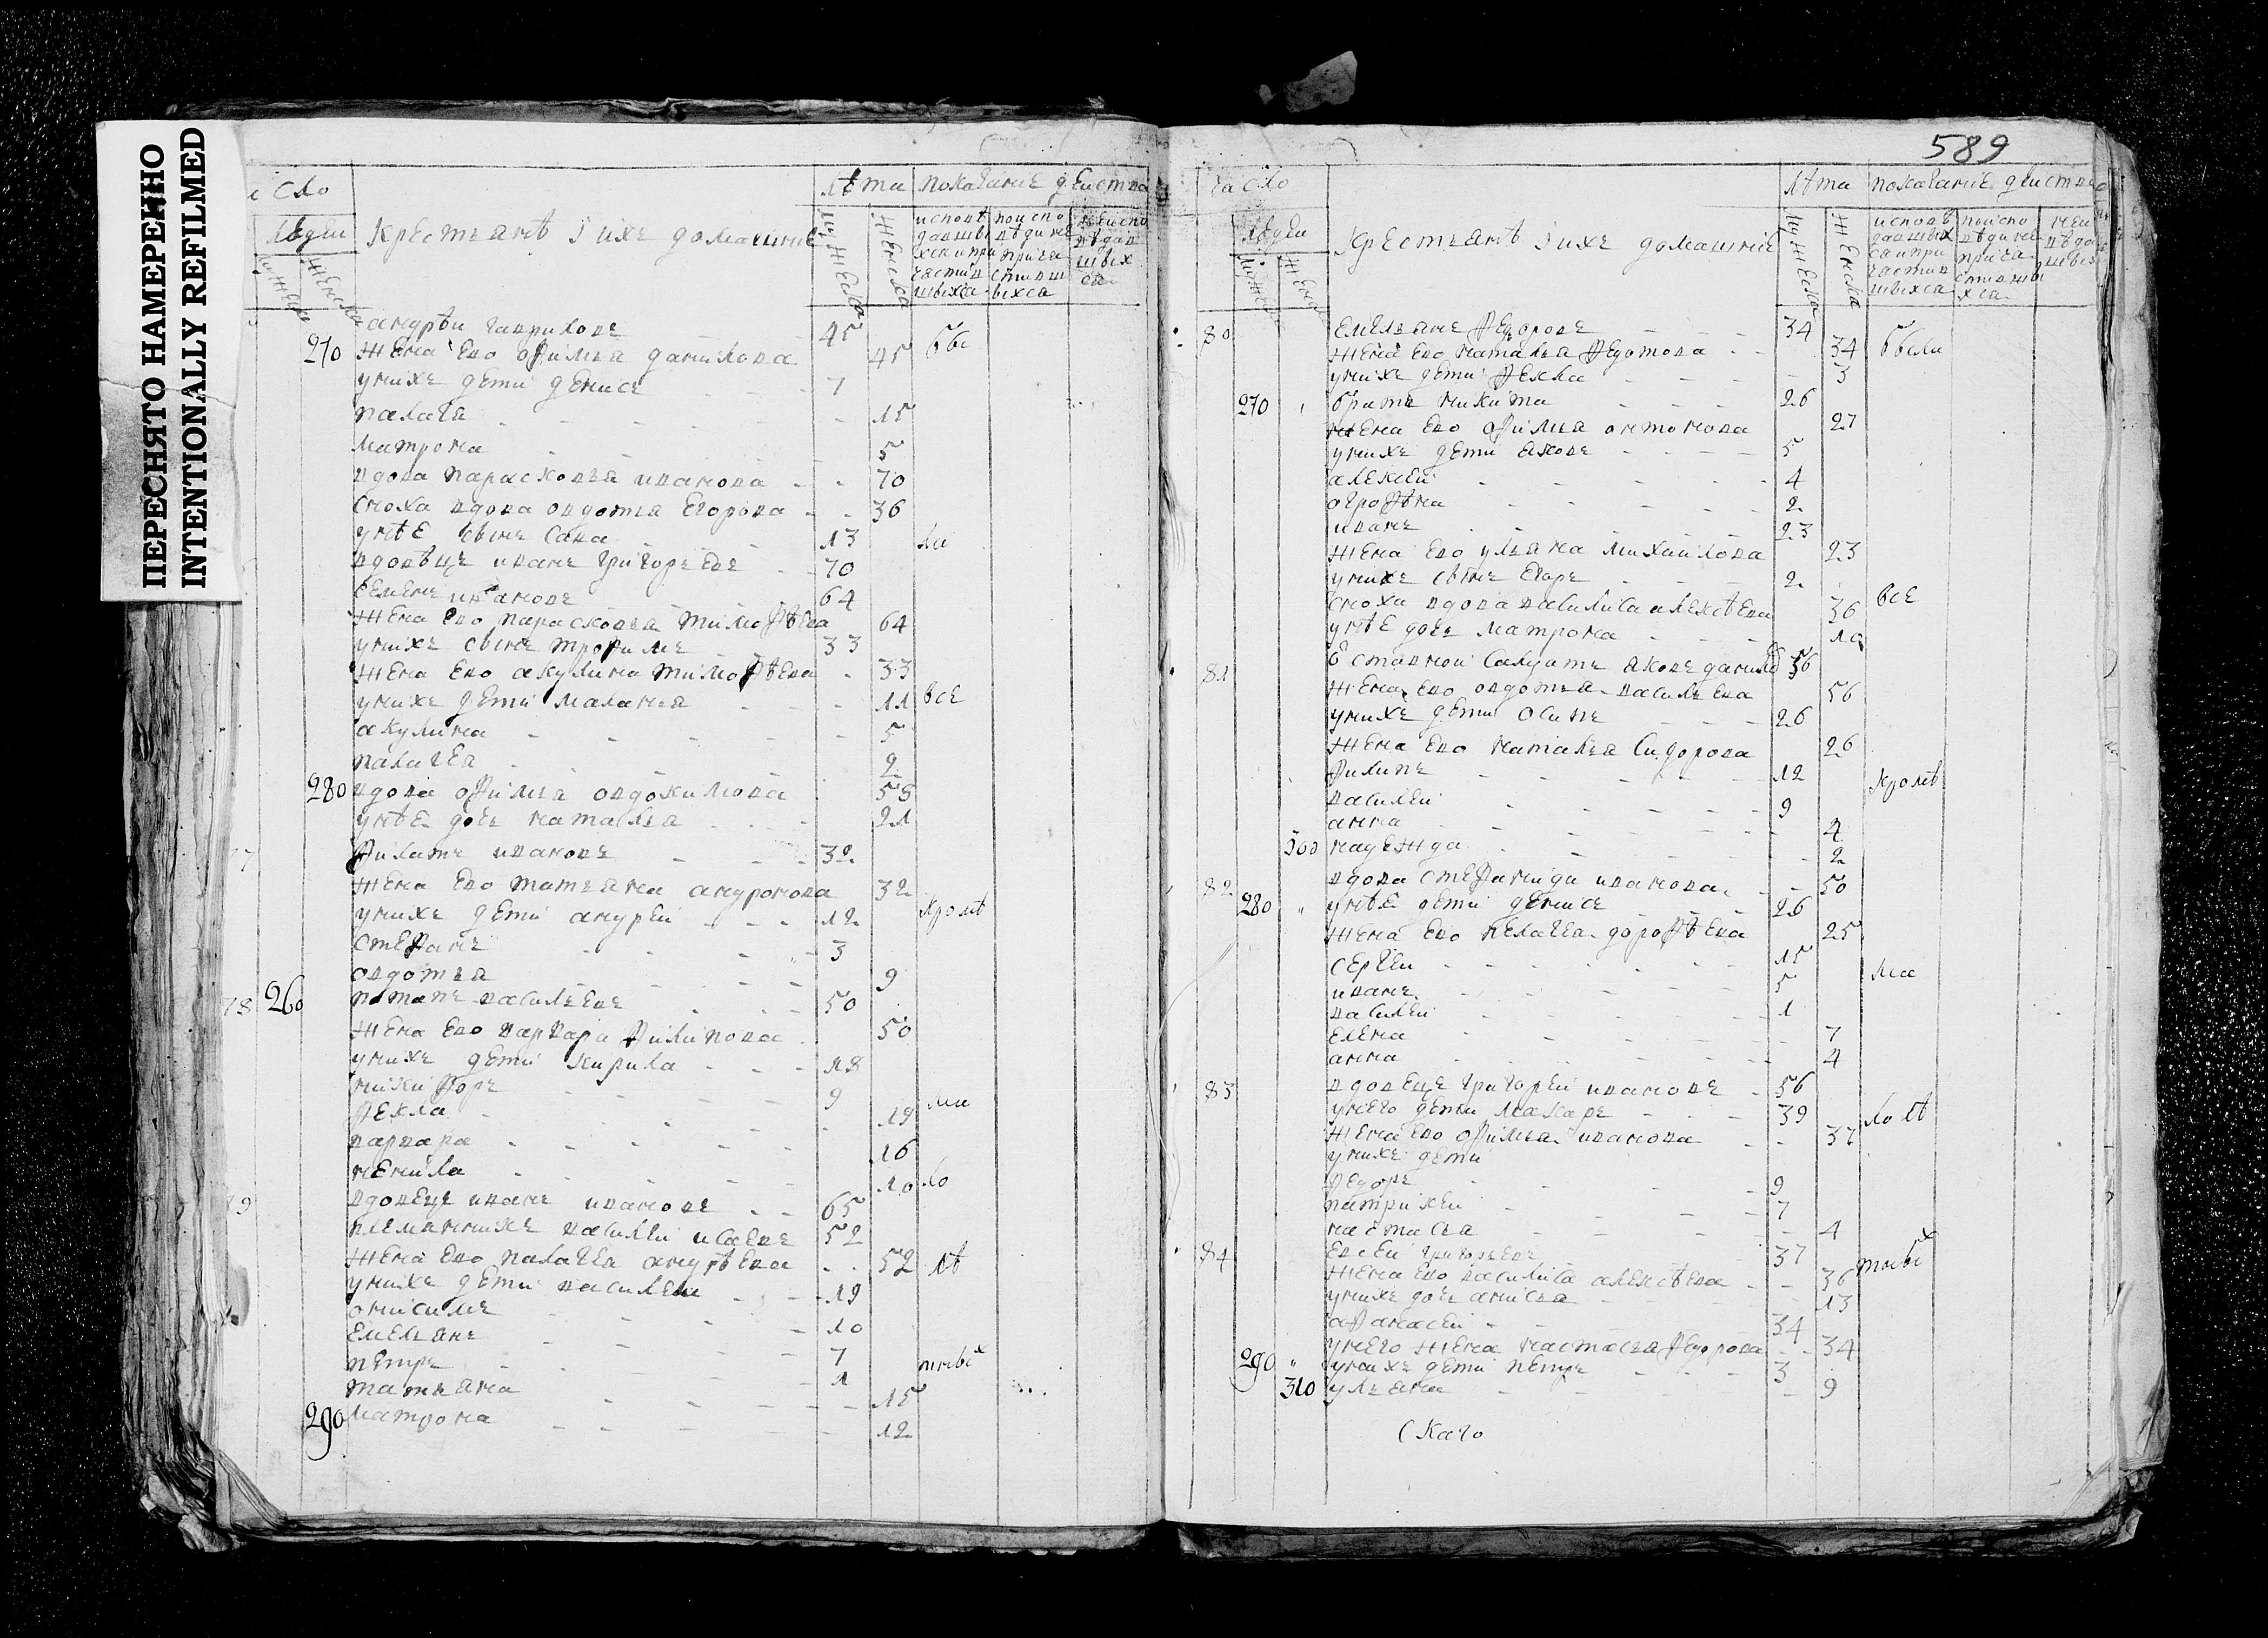 ПЕРЕСНЯТО НАМЕРЕННО
INTENTIONALLY REFILMED
сло
людеи
мужеска
женска
крестьянѣ i ихъ домашние
лѣта
показание действа
мужеска
женска
андрѣи гавриловъ 45
270 жена ево офимья данилова 45
уних дети денисъ 7
палагя 15
матрона 5
вдова парасковья иванова 70
сноха вдова овдотья егорова 36
унѣе сынъ сава 13
вдовѣцъ иванъ григорьевъ 70
семенъ ивановъ 64
жена ево парасковья тимофѣева 64
унихъ сынъ трофимъ 33
жена ево акулина тимофѣева 33
унихъ дети маланья 11 все
акулина 5
палагея 2
280 вдова офимья овдокимова 58
унѣе дочь наталья 21
филатъ ивановъ 32
жена ево татьяна андронова 32
унихъ дети андреи 12
стефанъ 3
овдотья 9
78 260 потапъ васильевъ 50
жена ево варвара филипова 50
унихъ дети кирила 18
никифоръ 9
фекла 19
варвара 16
ненила 10
вдовецъ иванъ ивановъ 65
племянникъ василеи исаевъ 52
жена ево палагея андрѣева 52
унихъ дети василеи 19
онисимъ 10
емельянъ 7
петръ 1
татьяна 15
290 матрона 12
589
число
людеи
крестьянѣ i ихъ домашние
лѣта
показание действа
мужеска
женска
80 емельянъ федоровъ 34
жена ево наталья федотова 34 были
унихъ дети фекла 3
270 братъ никита 26
жена ево офимья онтонова 27
унихъ дети яковъ 5
алексеи 4
огрофѣна 2
иванъ 23
жена ево ульяна михаилова 23
унихъ сынъ егоръ 2
сноха вдова василиса алексѣева 36 все
унѣе дочь матрона
81 отставнои салдатъ яковъ данило 56
жена ево овдотья васильева 56
унихъ дети осипъ 26
жена ево наталья сидорова 26
филипъ 12
василеи 9
анна 4
300 надежда 2
82 вдова стефанида иванова 50
280 унѣе дети денисъ 26
жена ево пелагея дорофѣева 25
сергеи 15
иванъ 5
василеи 1
елена 7
анна 4
83 вдовецъ григореи ивановъ 56
унего дети макаръ 39
жена ево офимья иванова 37
унихъ дети
федоръ 9
патрикеи 7
настасья 4
84 евсеи григорьевъ 37
жена ево василиса алексѣева 36
унихъ дочь анисья 13
афанасеи 34
унего жена настасья федорова 34
290 унихъ дети петръ 3
310 ульяна 9
скаго